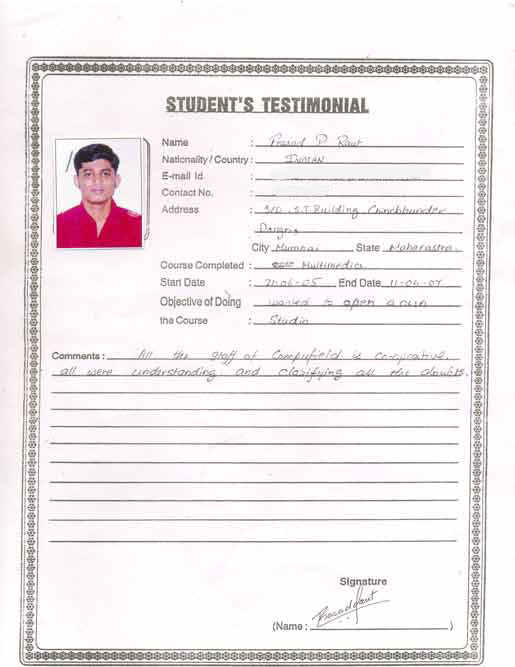 STUDENT'S TESTIMONIAL
Name : Prasad P Raut
Nationality / Country : INDIAN
E-mail Id :
Contact No. :
Address : 3/D, S.T. Building, Chinchbunder
Dongri
City Mumbai State Maharastra
Course Completed : Multimedia
Start Date : 21-06-05 End Date 11-04-07
Objective of Doing : wanted to open a own
the Course : Studio
Comments : All the staff of Compufield is co-oprative.
all were understanding and clarifying all the doubts.
Signature
(Name : Prasad Raut )